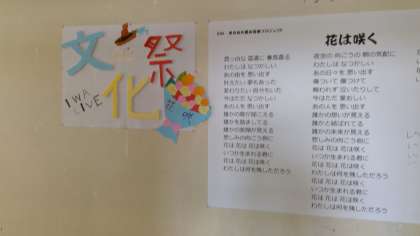 文化祭
IWA
LIVE
花咲
花は咲く
真っ白な 雪道に 春風香る
わたしは なつかしい
あの街を 思い出す
叶えたい 夢もあった
変わりたい 自分もいた
今はただ なつかしい
あの人を 思い出す
誰かの歌が聞こえる
誰かを励ましてる
誰かの笑顔が見える
悲しみの向こう側に
花は 花は 花は咲く
いつか生まれる君に
花は 花は 花は咲く
わたしは何を残しただろう
夜空の 向こうの 朝の気配に
わたしは なつかしい
あの日々を 思い出す
傷ついて 傷つけて
報われず 泣いたりして
今はただ 愛おしい
あの人を 思い出す
誰かの想いが見える
誰かと結ばれてる
誰かの未来が見える
悲しみの向こう側に
花は 花は 花は咲く
いつか生まれる君に
花は 花は 花は咲く
わたしは何を残しただろう
花は 花は 花は咲く
いつか生まれる君に
花は 花は 花は咲く
わたしは何を残しただろう